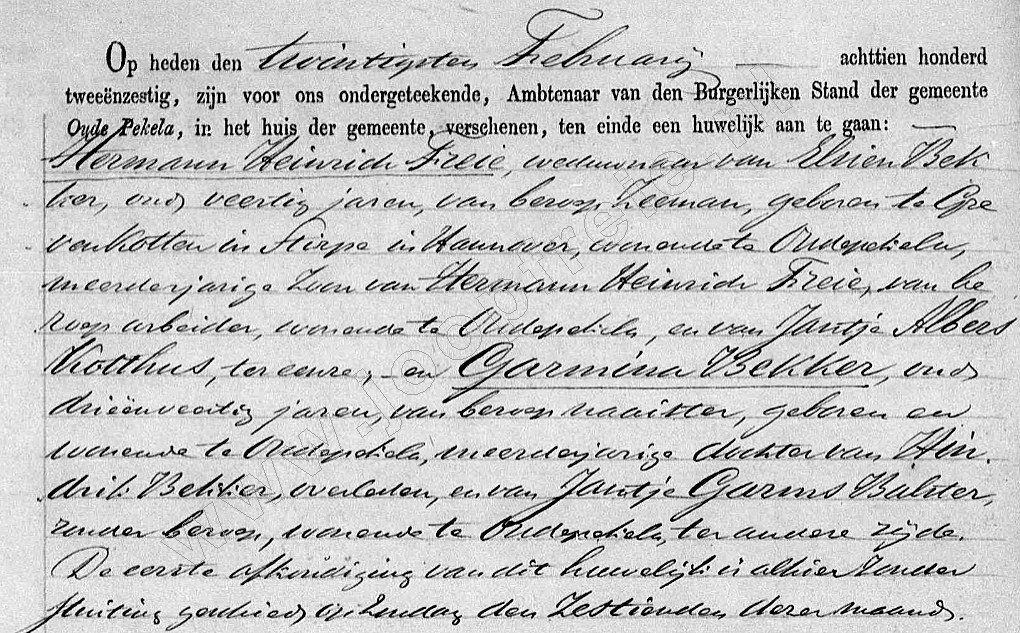 Op heden den twintigsten Februarij achttien honderd
tweeënzestig, zijn voor ons ondergeteekende, Ambtenaar van den Burgerlijken Stand der gemeente
Oude Pekela, in het huis der gemeente, verschenen, ten einde een huwelijk aan te gaan:
Hermann Heinrich Freie, weduwnaar van Elsien Bek
ker, oud veertig jaren, van beroep Zeeman, geboren te Gre
venkotten in Stirpe in Hannover, wonende te Oudepekela,
meerderjarige Zoon van Hermann Heinrich Freie, van be
roep arbeider, wonende te Oudepekela, en van Jantje Albers
Kotthus, ter eenre; en Garmina Bekker, oud
drieënveertig jaren, van beroep naaister, geboren en
wonende te Oudepekela, meerderjarige dochter van Hin
drik Bekker, overleden, en van Jantje Garms Bulster,
zonder beroep, wonende te Oudepekela, ter andere zijde.
De eerste afkondiging van dit huwelijk is alhier zonder
stuiting geschied op Zondag den Zestienden dezer maand.